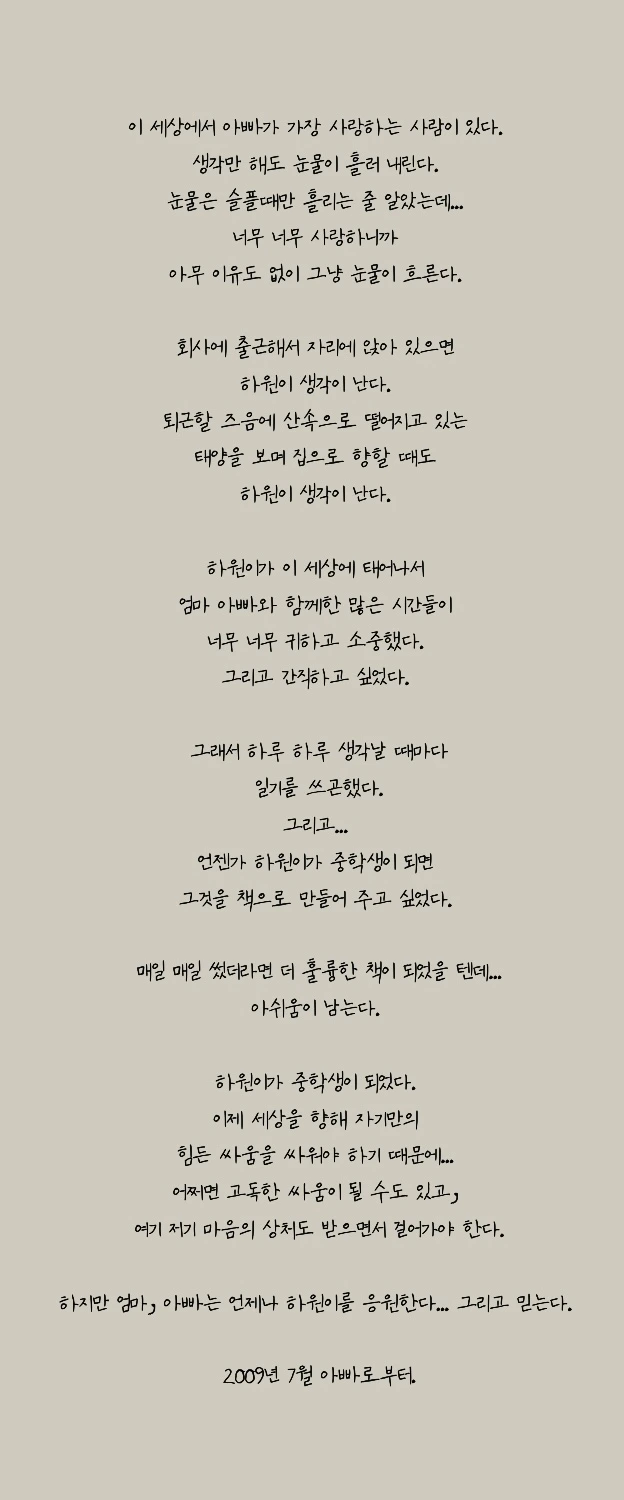 이 세상에서 아빠가 가장 사랑하는 사람이 있다.
생각만 해도 눈물이 흘러 내린다.
눈물은 슬플때만 흘리는 줄 알았는데...
너무 너무 사랑하니까
아무 이유도 없이 그냥 눈물이 흐른다.
회사에 출근해서 자리에 앉아 있으면
하원이 생각이 난다.
퇴근할 즈음에 산속으로 떨어지고 있는
태양을 보며 집으로 향할 때도
하원이 생각이 난다.
하원이가 이 세상에 태어나서
엄마 아빠와 함께한 많은 시간들이
너무 너무 귀하고 소중했다.
그리고 간직하고 싶었다.
그래서 하루 하루 생각날 때마다
일기를 쓰곤했다.
그리고...
언젠가 하원이가 중학생이 되면
그것을 책으로 만들어 주고 싶었다.
매일 매일 썼더라면 더 훌륭한 책이 되었을 텐데...
아쉬움이 남는다.
하원이가 중학생이 되었다.
이제 세상을 향해 자기만의
힘든 싸움을 싸워야 하기 때문에...
어쩌면 고독한 싸움이 될 수도 있고,
여기 저기 마음의 상처도 받으면서 걸어가야 한다.
하지만 엄마, 아빠는 언제나 하원이를 응원한다... 그리고 믿는다.
2009년 7월 아빠로부터.